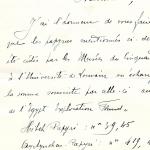 J'ai l'honneur de vous faire
que les papyrus mentionnés ci-de
été cédés par les Musées du Cinquan
à l'Université de Louvain en échan
la somme versée par elle-ci au
de l'Egypt Exploration Fund.
Hibeh Papyri : n° 39, 45
Oxyrhynchus Papyri : n° 419,